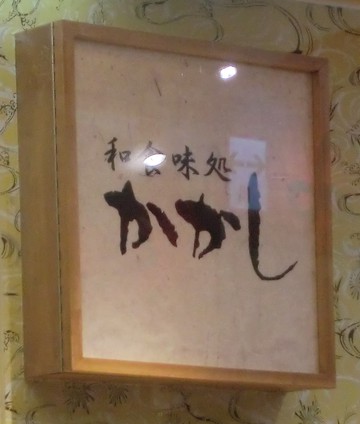 和食味処
かかし